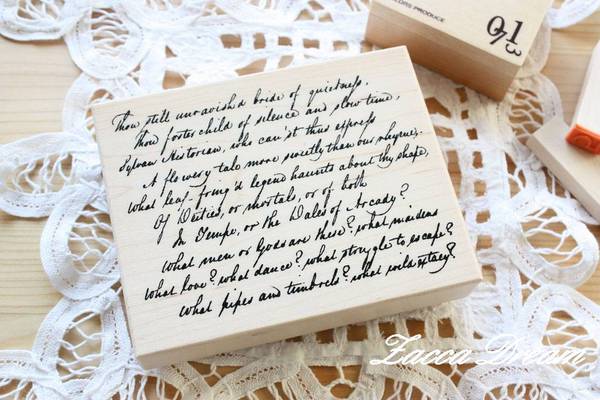 Thou still unravish'd bride of quietness,
Thou foster child of silence and slow time,
Sylvan Historian, who can'st thus express
A flowery tale more sweetly than our rhyme:
What leaf-fring'd legend haunts about thy shape,
Of Deities, or mortals, or of both
In Tempe, or the Dales of Arcady?
What men or Gods are these? what maidens
What love? what dance? what struggle to escape?
What pipes and timbrels? what wild extacy?
COLORS PRODUCE
Zacca Dream